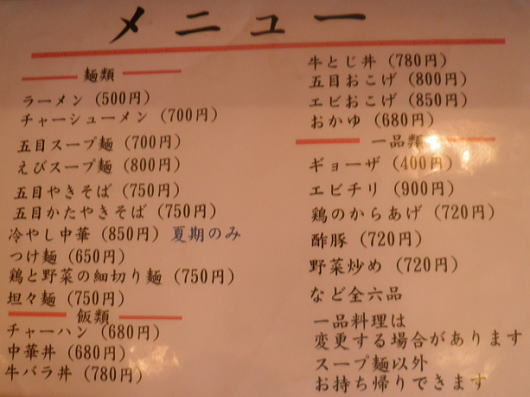 メニュー
麺類
ラーメン (500円)
チャーシューメン (700円)
五目スープ麺 (700円)
えびスープ麺 (800円)
五目やきそば (750円)
五目かたやきそば (750円)
冷やし中華 (850円) 夏期のみ
つけ麺 (650円)
鶏と野菜の細切り麺 (750円)
坦々麺 (750円)
飯類
チャーハン (680円)
中華丼 (680円)
牛バラ丼 (780円)
牛とじ丼 (780円)
五目おこげ (800円)
エビおこげ (850円)
おかゆ (680円)
一品類
ギョーザ (400円)
エビチリ (900円)
鶏のからあげ (720円)
酢豚 (720円)
野菜炒め (720円)
など全六品
一品料理は
変更する場合があります
スープ麺以外
お持ち帰りできます